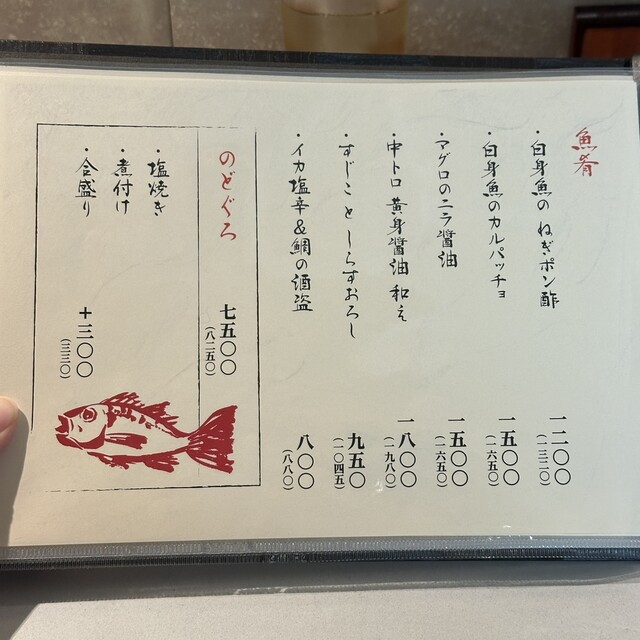 魚肴
・白身魚の ねぎポン酢 一二〇〇
（一三二〇）
・白身魚のカルパッチョ 一五〇〇
（一六五〇）
・マグロのニラ醤油 一五〇〇
（一六五〇）
・中トロ 黄身醤油 和え 一八〇〇
（一九八〇）
・すじこ と しらすおろし 九五〇
（一〇四五）
・イカ塩辛&鯛の酒盗 八〇〇
（八八〇）
のどぐろ 七五〇〇
（八二五〇）
・塩焼き
・煮付け
・合盛り 十三〇〇
（三三〇）